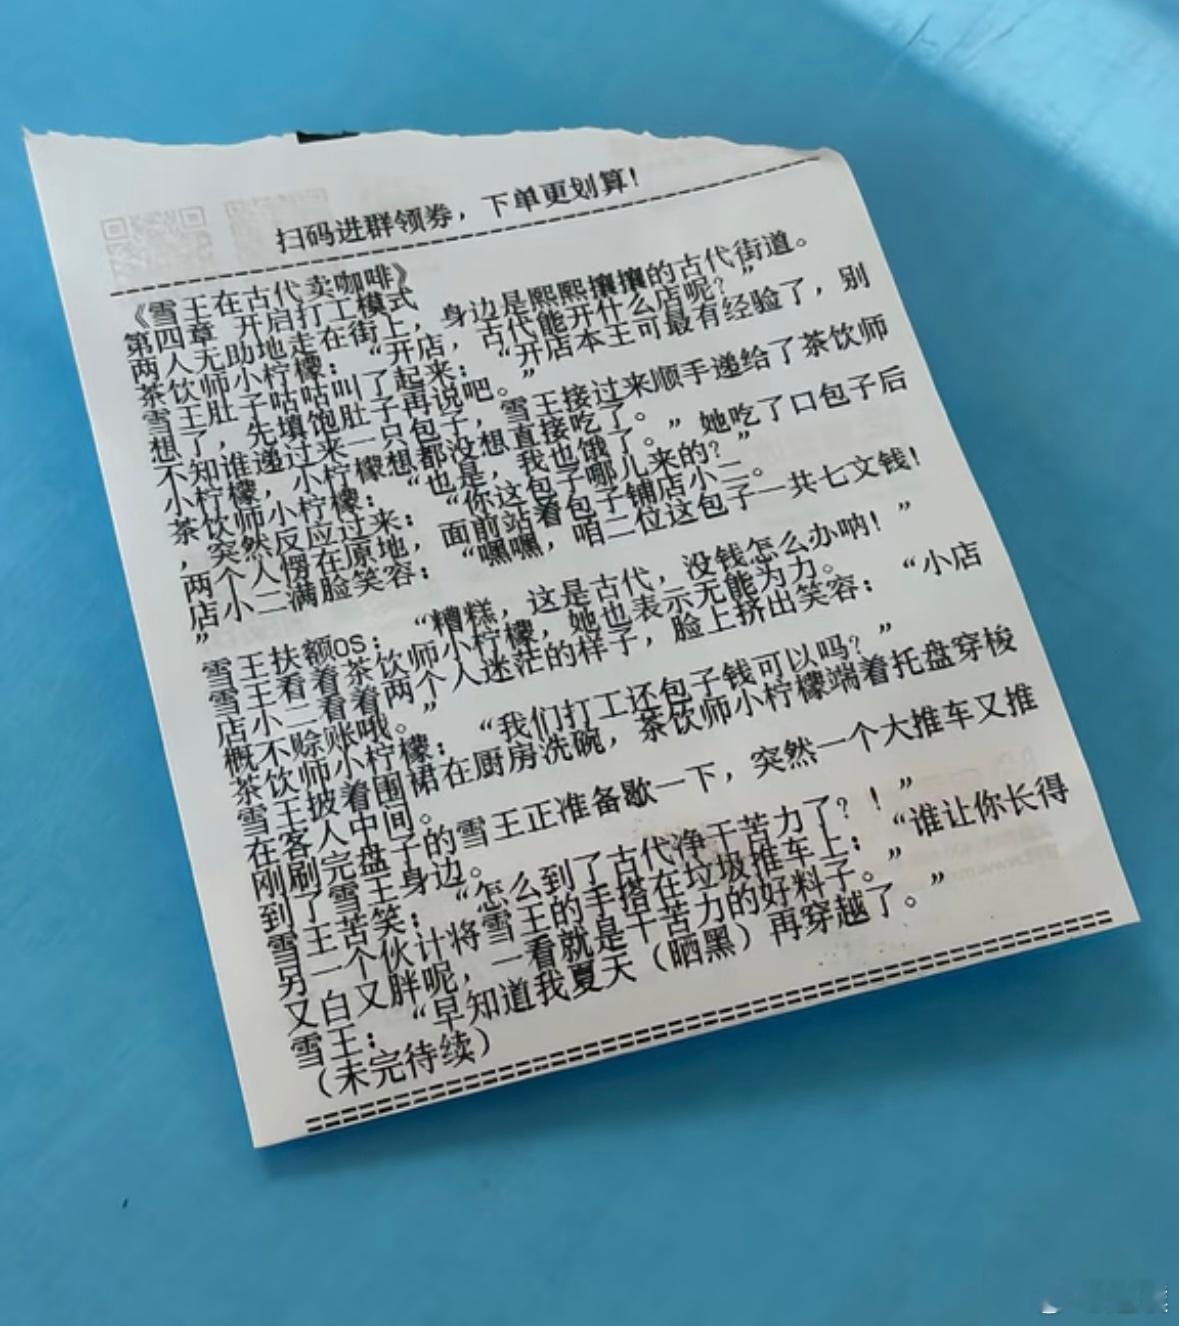 扫码进群领券，下单更划算！
《雪王在古代卖咖啡》
第四章 开启打工模式
两人无助地走在街上，身边是熙熙攘攘的古代街道。
茶饮师小柠檬：“开店，古代能开什么店呢？”
雪王肚子咕咕叫了起来：“开店本王可最有经验了，别
想了，先填饱肚子再说吧。”
不知谁递过来一只包子，雪王接过来顺手递给了茶饮师
小柠檬，小柠檬想都没想直接吃了。
茶饮师小柠檬：“也是，我也饿了。”她吃了口包子后
，突然反应过来：“你这包子哪儿来的？”
两个人愣在原地，面前站着包子铺店小二。
店小二满脸笑容：“嘿嘿，咱二位这包子一共七文钱！
”
雪王扶额OS：“糟糕，这是古代，没钱怎么办呐！”
雪王看着茶饮师小柠檬，她也表示无能为力。
店小二看着两个人迷茫的样子，脸上挤出笑容：“小店
概不赊账哦。”
茶饮师小柠檬：“我们打工还包子钱可以吗？”
雪王披着围裙在厨房洗碗，茶饮师小柠檬端着托盘穿梭
在客人中间。
刚刷完盘子的雪王正准备歇一下，突然一个大推车又推
到了雪王身边。
雪王苦笑：“怎么到了古代净干苦力了？！”
另一个伙计将雪王的手搭在垃圾推车上：“谁让你长得
又白又胖呢，一看就是干苦力的好料子。”
雪王：“早知道我夏天（晒黑）再穿越了。”
（未完待续）